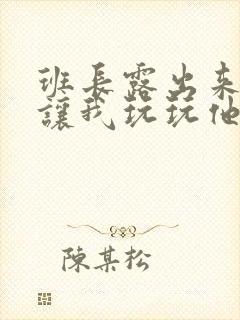 班长露出来
讓我玩玩他
陳某松